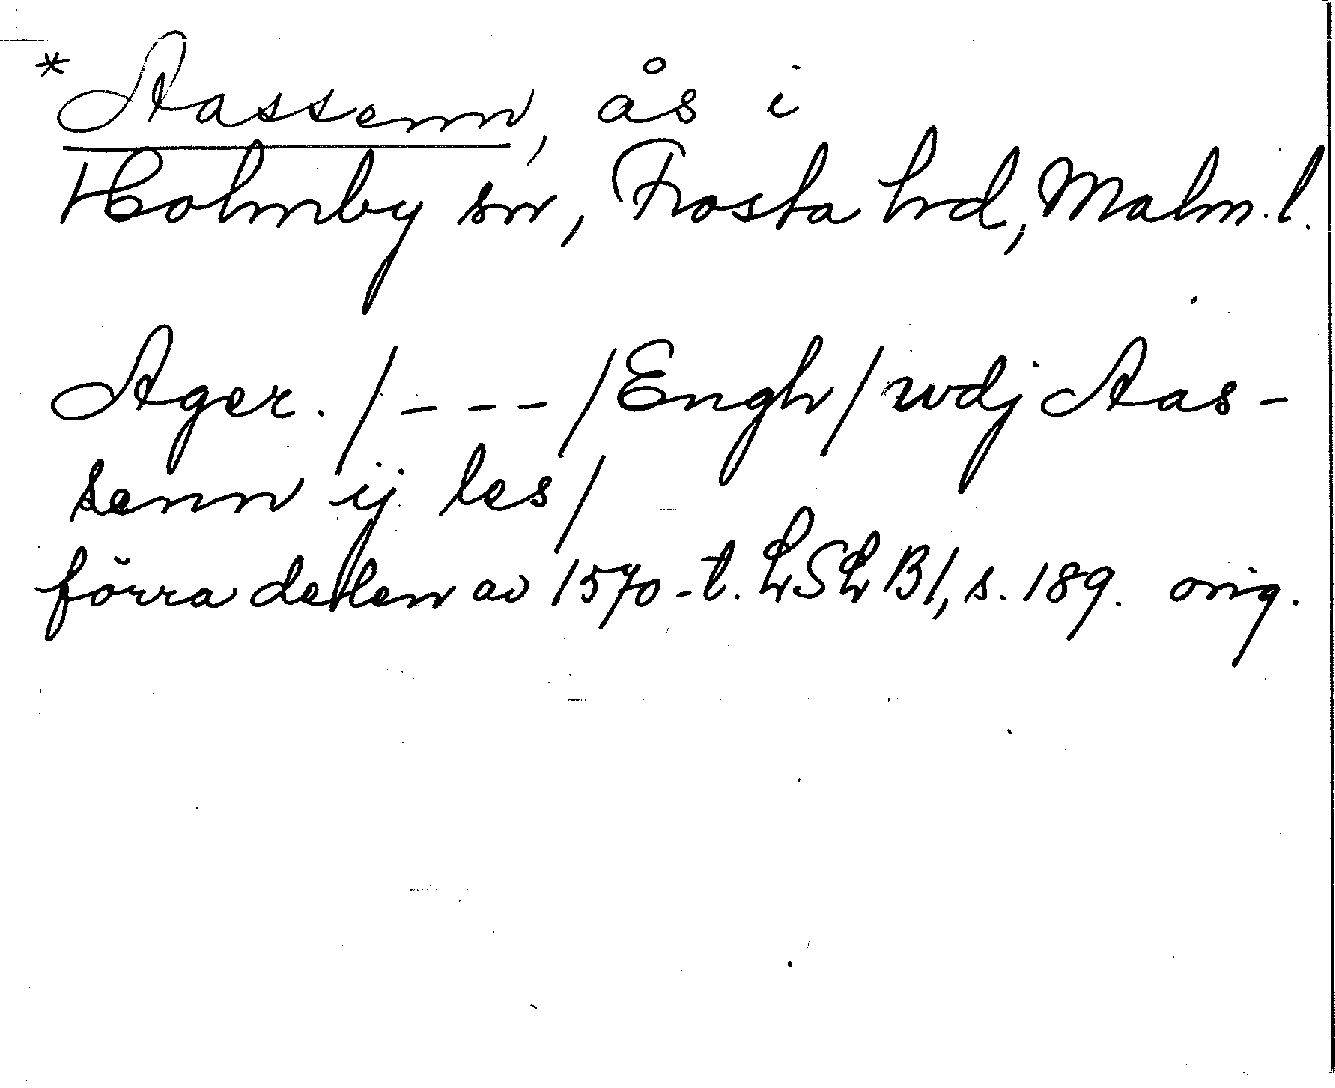 *Aassenn, ås i
Holmby sn, Frosta hd, Malm. l.
Ager. / - - - / Engh / wdj Aas-
senn ij les /
förra delen av 1570-t. LSLB1, s. 189. orig.